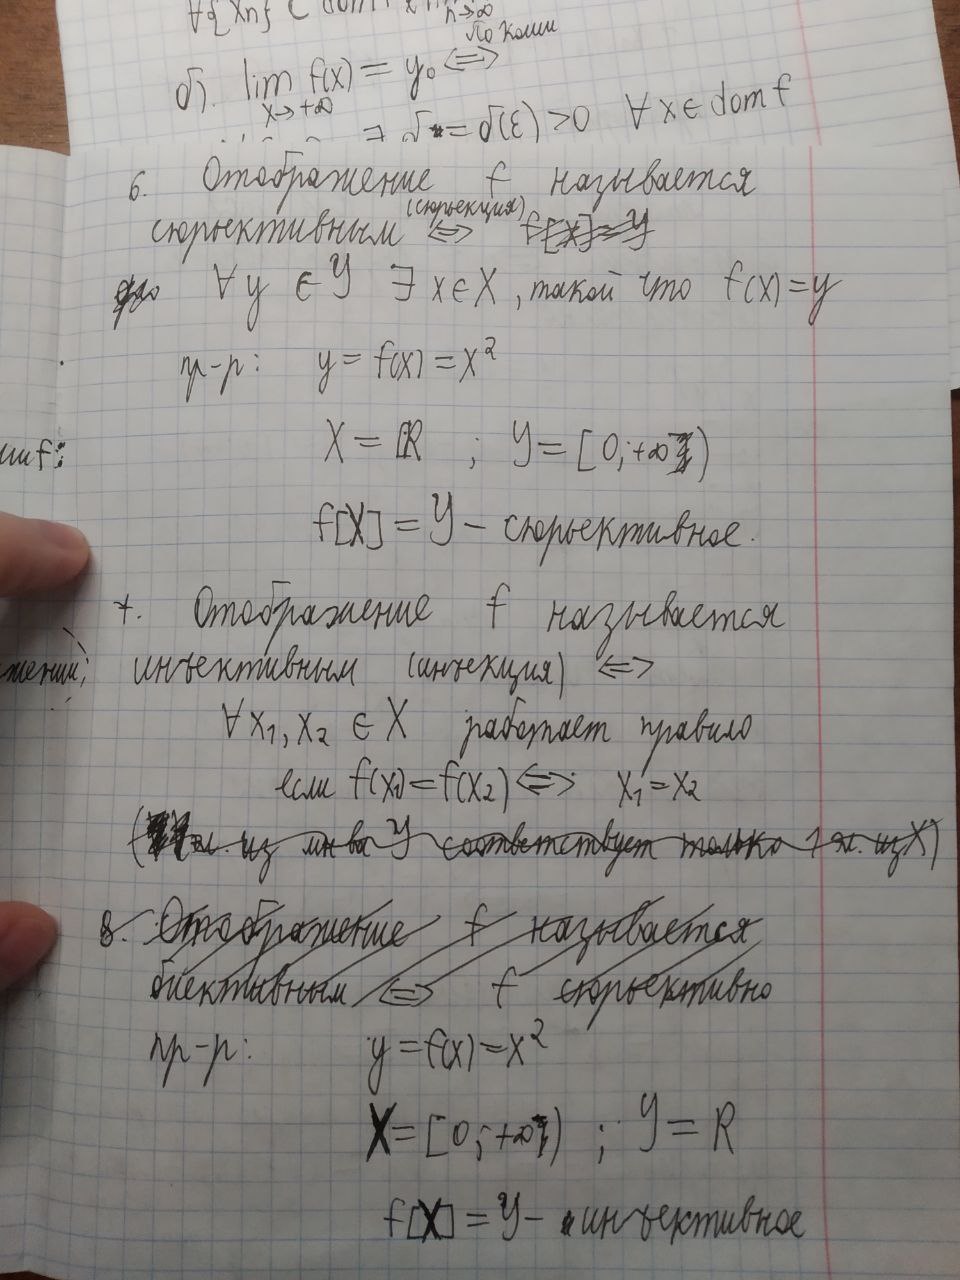 ∀{Xn} ⊂ dom f
n→∞
По Коши
б). lim f(x) = y₀ ⟺
x→+∞
∃ δ = δ(ε) > 0 ∀ x ∈ dom f
6. Отображение f называется
(сюрьекция)
сюрьективным ⟺ f[X]=Y
∀ y ∈ Y ∃ x ∈ X, такой что f(x) = y
пр-р: y = f(x) = x²
X = R ; Y = [0; +∞)
f[X] = Y – сюрьективное.
7. Отображение f называется
инъективным (инъекция) ⟺
∀ x₁, x₂ ∈ X работает правило
если f(x₁) = f(x₂) ⟺ x₁ = x₂
эл. из мн-ва Y соответствует только 1 эл. из X)
8. Отображение f называется
биективным ⟺ f сюрьективно
пр-р: y = f(x) = x²
X = [0; +∞) ; Y = R
f[X] = Y – инъективное